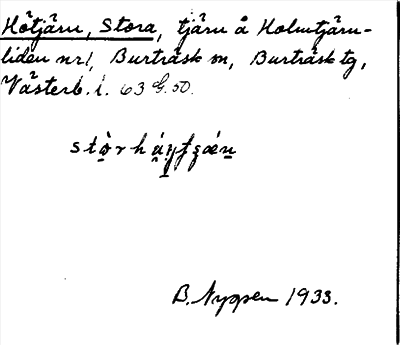 Hötjärn, Stora, tjärn å Holmtjärn-
liden nr 1, Burträsk sn, Burträsk tg,
Västerb. l. 63 G. 50.
B. Nygren 1933.